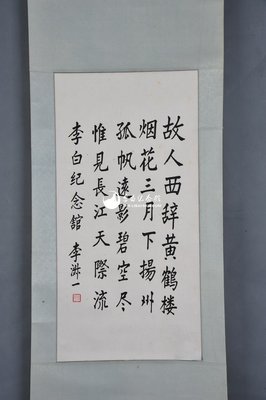 故人西辞黄鹤楼
烟花三月下揚州
孤帆遠影碧空尽
惟見長江天際流
李白纪念舘 李淑一